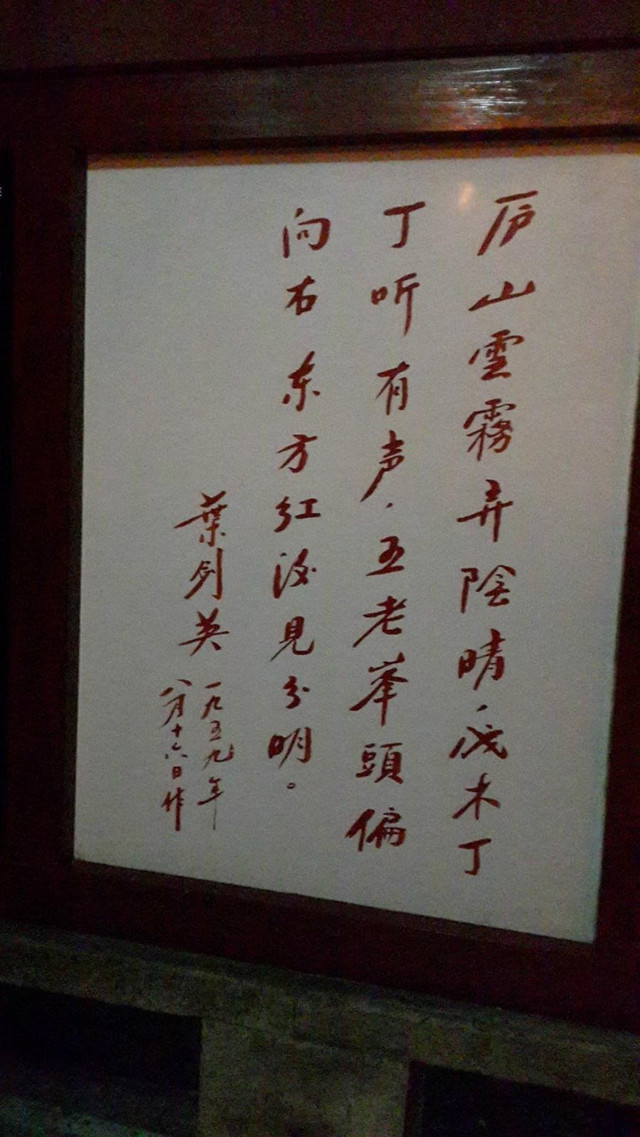 庐山雲霧弄陰晴，伐木丁
丁听有声．五老峯頭偏
向右东方红後見分明。
葉剑英 一九五九年
八月十六日作